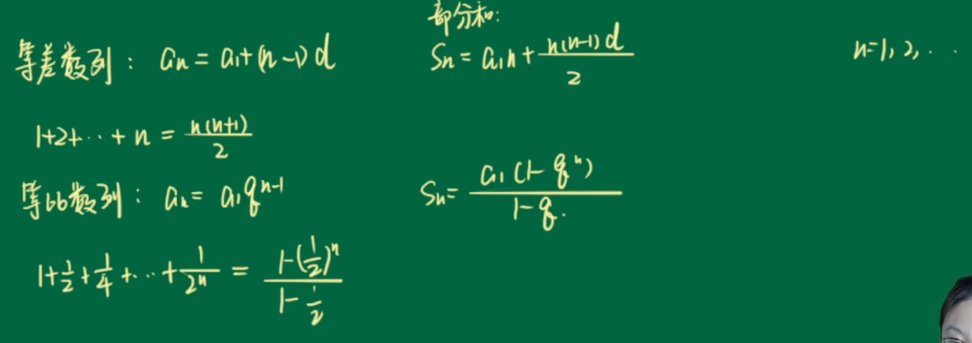 部分和:
等差数列: aₙ = a₁+(n-1)d Sₙ = a₁n + n(n-1)d/2 n=1,2,...
1+2+...+n = n(n+1)/2
等比数列: aₙ = a₁qⁿ⁻¹ Sₙ = a₁(1-qⁿ)/1-q.
1+1/2+1/4+...+1/2ⁿ = 1-(1/2)ⁿ/1-1/2